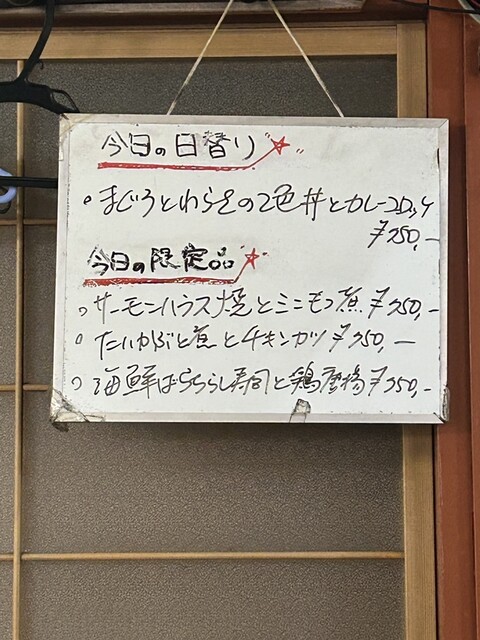 今日の日替り
・まぐろとわらさの2色丼とカレーコロッケ
¥750,-
今日の限定品
○サーモンハラス焼とミニもつ煮¥750,-
○たいかぶと煮とチキンカツ¥750,-
○海鮮ばらちらし寿司と鶏唐揚¥750,-